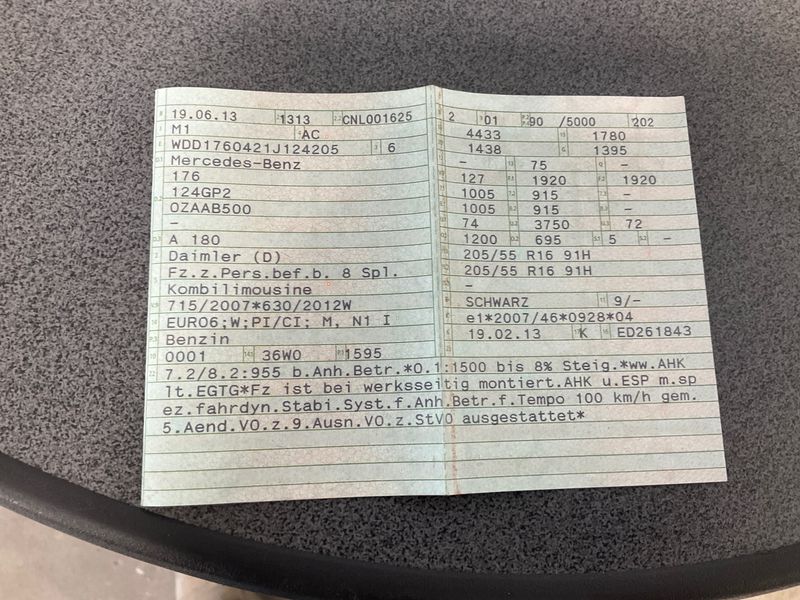 19.06.13 1313 CNL001625
M1 AC
WDD1760421J124205 6
Mercedes-Benz
176
124GP2
0ZAAB500
-
A 180
Daimler (D)
Fz.z.Pers.bef.b. 8 Spl.
Kombilimousine
715/2007*630/2012W
EURO6;W;PI/CI; M, N1 I
Benzin
0001 36W0 1595
2 01 90 /5000 202
4433 1780
1438 1395
- 75 -
127 1920 1920
1005 915 -
1005 915 -
74 3750 72
1200 695 5 -
205/55 R16 91H
205/55 R16 91H
-
SCHWARZ 9/-
e1*2007/46*0928*04
19.02.13 K ED261843
7.2/8.2:955 b.Anh.Betr.*O.1:1500 bis 8% Steig.*ww.AHK
lt.EGTG*Fz ist bei werksseitig montiert.AHK u.ESP m.sp
ez.fahrdyn.Stabi.Syst.f.Anh.Betr.f.Tempo 100 km/h gem.
5.Aend.VO.z.9.Ausn.VO.z.StVO ausgestattet*